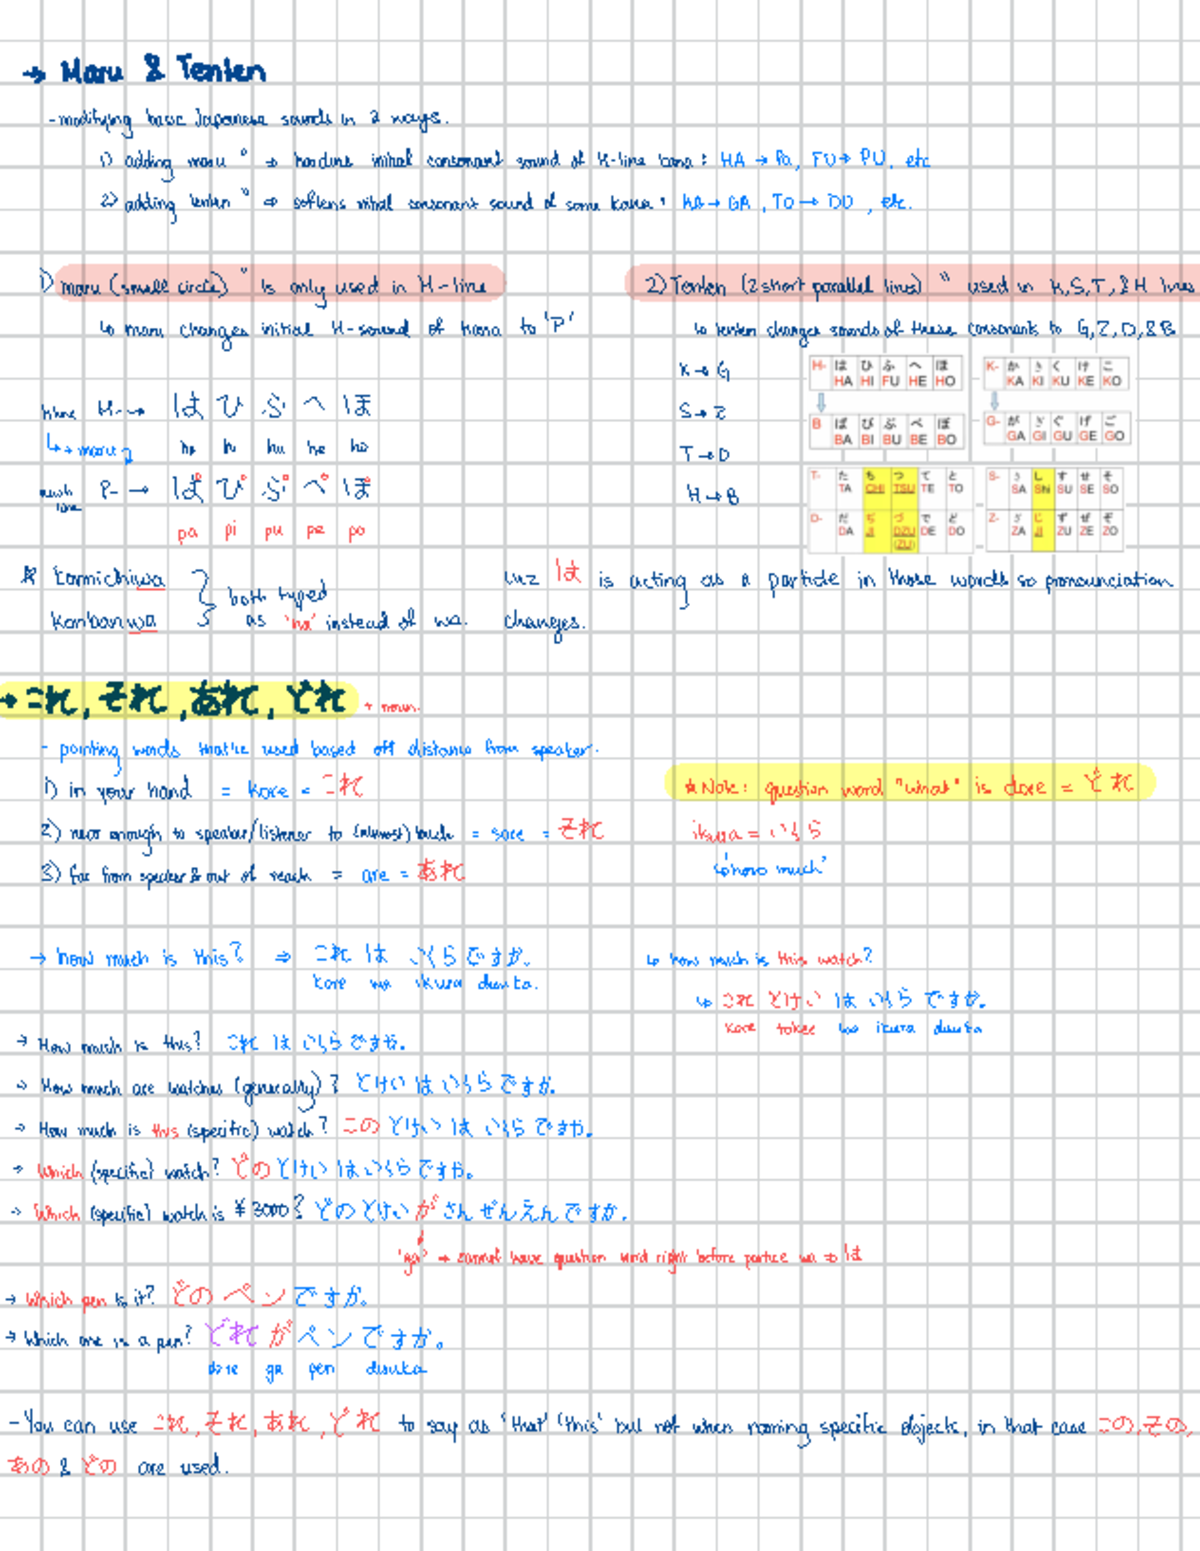 → Maru & Tenten
- modifying basic Japanese sounds in 2 ways.
1) adding maru ° → hardens initial consonant sound of H-line kana: HA → Pa, FU → PU, etc
2) adding tenten " ⇒ softens initial consonant sound of some kana: KA → GA, TO → DO, etc.
1) maru (small circle) ° is only used in H-line
↳ maru changes initial H-sound of kana to 'P'
H → はひふへほ
↳ + maru
ha hi hu he ho
P- → ぱぴぷぺぽ
pa pi pu pe po
2) Tenten (2 short parallel lines) " used in K,S,T, & H lines
↳ tenten changes sounds of these consonants to G,Z,D,&B
K → G
S → Z
T → D
H → B
H- は ひ ふ へ ほ
HA HI FU HE HO
B ば び ぶ べ ぼ
BA BI BU BE BO
K- か き く け こ
KA KI KU KE KO
G- が ぎ ぐ げ ご
GA GI GU GE GO
T- た ち つ て と
TA CHI TSU TE TO
D- だ ぢ づ で ど
DA JI DZU (ZU) DE DO
S- さ し す せ そ
SA SHI SU SE SO
Z- ざ じ ず ぜ ぞ
ZA JI ZU ZE ZO
* Konnichiwa
Konbanwa
both typed as 'ha' instead of wa.
cuz は is acting as a particle in those words so pronunciation changes.
→ これ, それ, あれ, どれ + noun.
- pointing words that're used based off distance from speaker.
1) in your hand = kore = これ
2) near enough to speaker/listener to (almost) touch = sore = それ
3) far from speaker & out of reach = are = あれ
* Note: question word "what" is dore = どれ
ikura = いくら
↳ 'how much'
→ how much is this? ⇒ これ は いくらですか。
kore wa ikura desuka.
↳ how much is this watch?
↳ これ とけい は いくら ですか。
kore tokee wa ikura desuka
→ How much is this? これ は いくらですか。
→ How much are watches (generally)? とけい は いくらですか。
→ How much is this (specific) watch? この とけい は いくら ですか。
→ Which (specific) watch? どの とけい は いくら ですか。
→ Which (specific) watch is ¥3000? どの とけい が さん ぜんえん ですか。
'ga' → cannot have question word right before particle wa ⇒ は
→ Which pen is it? どの ペン ですか。
→ Which one is a pen? どれ が ペン ですか。
dore ga pen desuka
- You can use これ, それ, あれ, どれ to say as 'that' 'this' but not when naming specific objects, in that case この, その,
あの & どの are used.